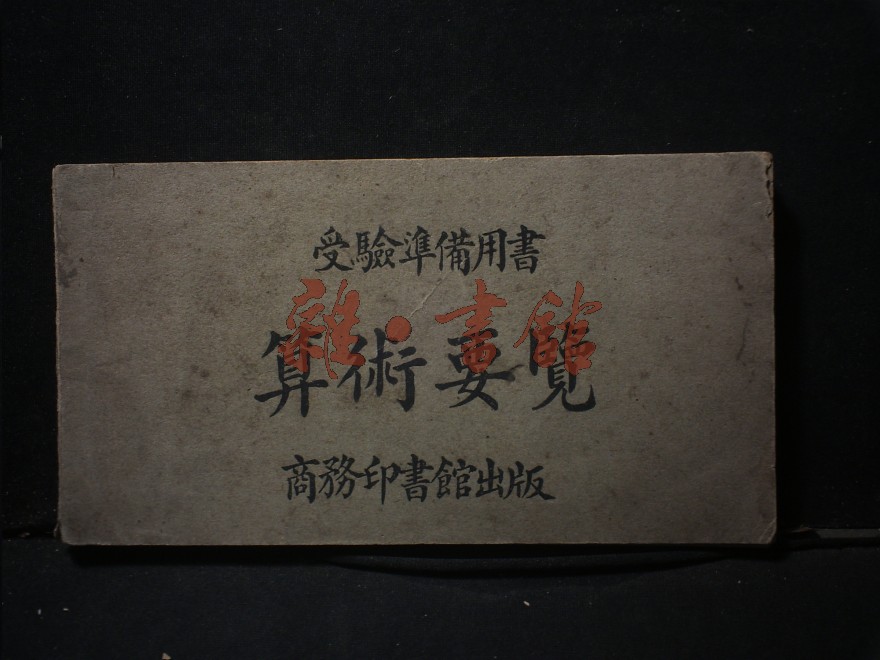 受驗準備用書
雜·書館
算術要覽
商務印書館出版